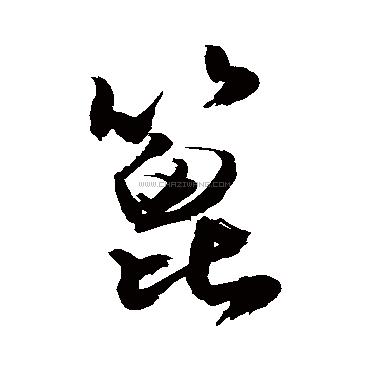 篦
WWW.CHAZIWANG.COM